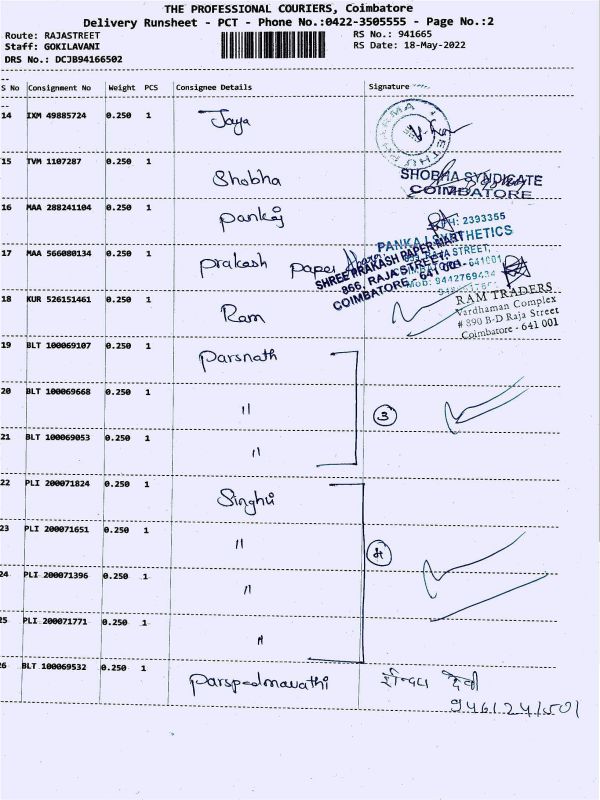 THE PROFESSIONAL COURIERS, Coimbatore
Delivery Runsheet - PCT - Phone No.:0422-3505555 - Page No.:2
Route: RAJASTREET
RS No.: 941665
Staff: GOKILAVANI
RS Date: 18-May-2022
DRS No.: DCJB94166502
S No Consignment No Weight PCS Consignee Details Signature
14 IXM 49885724 0.250 1 Jaya
15 TVM 1107287 0.250 1 Shobha
SHOBHA SYNDICATE
COIMBATORE
16 MAA 288241104 0.250 1 Pankaj
PH: 2393355
17 MAA 566080134 0.250 1 Prakash Paper
SHREE PRAKASH PAPER MART
866, RAJA STREET
COIMBATORE - 641 001
18 KUR 526151461 0.250 1 Ram
RAM TRADERS
Vardhaman Complex
# 890 B-D Raja Street
Coimbatore - 641 001
19 BLT 100069107 0.250 1 Parsnath
20 BLT 100069668 0.250 1 "
3
21 BLT 100069053 0.250 1 "
22 PLI 200071824 0.250 1 Singhvi
23 PLI 200071651 0.250 1 "
4
24 PLI 200071396 0.250 1 "
25 PLI 200071771 0.250 1 "
26 BLT 100069532 0.250 1 Parspadmavathi
देवी